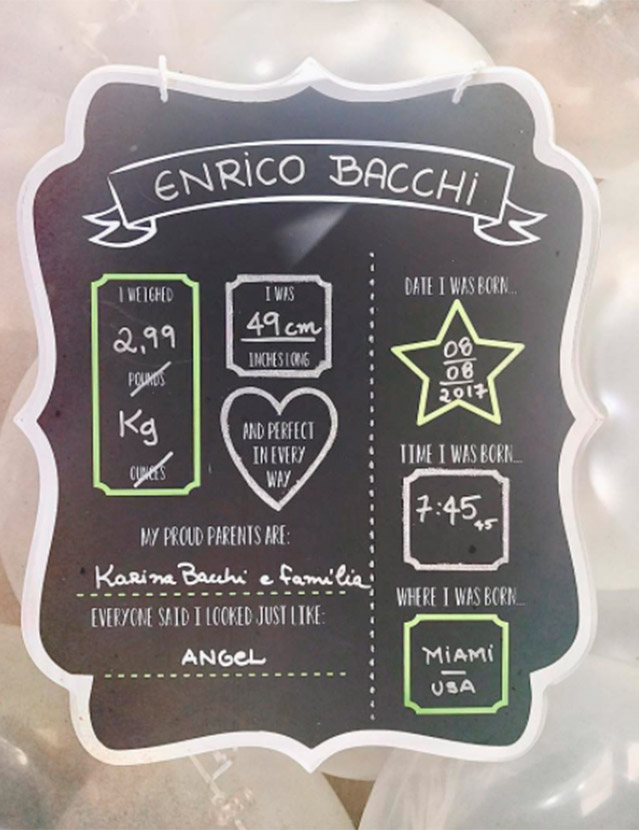 ENRICO BACCHI
I WEIGHED
2,99
POUNDS
Kg
OUNCES
I WAS
49 cm
INCHES LONG
AND PERFECT
IN EVERY
WAY
MY PROUD PARENTS ARE:
Karina Bacchi e família
EVERYONE SAID I LOOKED JUST LIKE:
ANGEL
DATE I WAS BORN...
08
08
2017
TIME I WAS BORN...
7:45 45
WHERE I WAS BORN...
MIAMI
USA